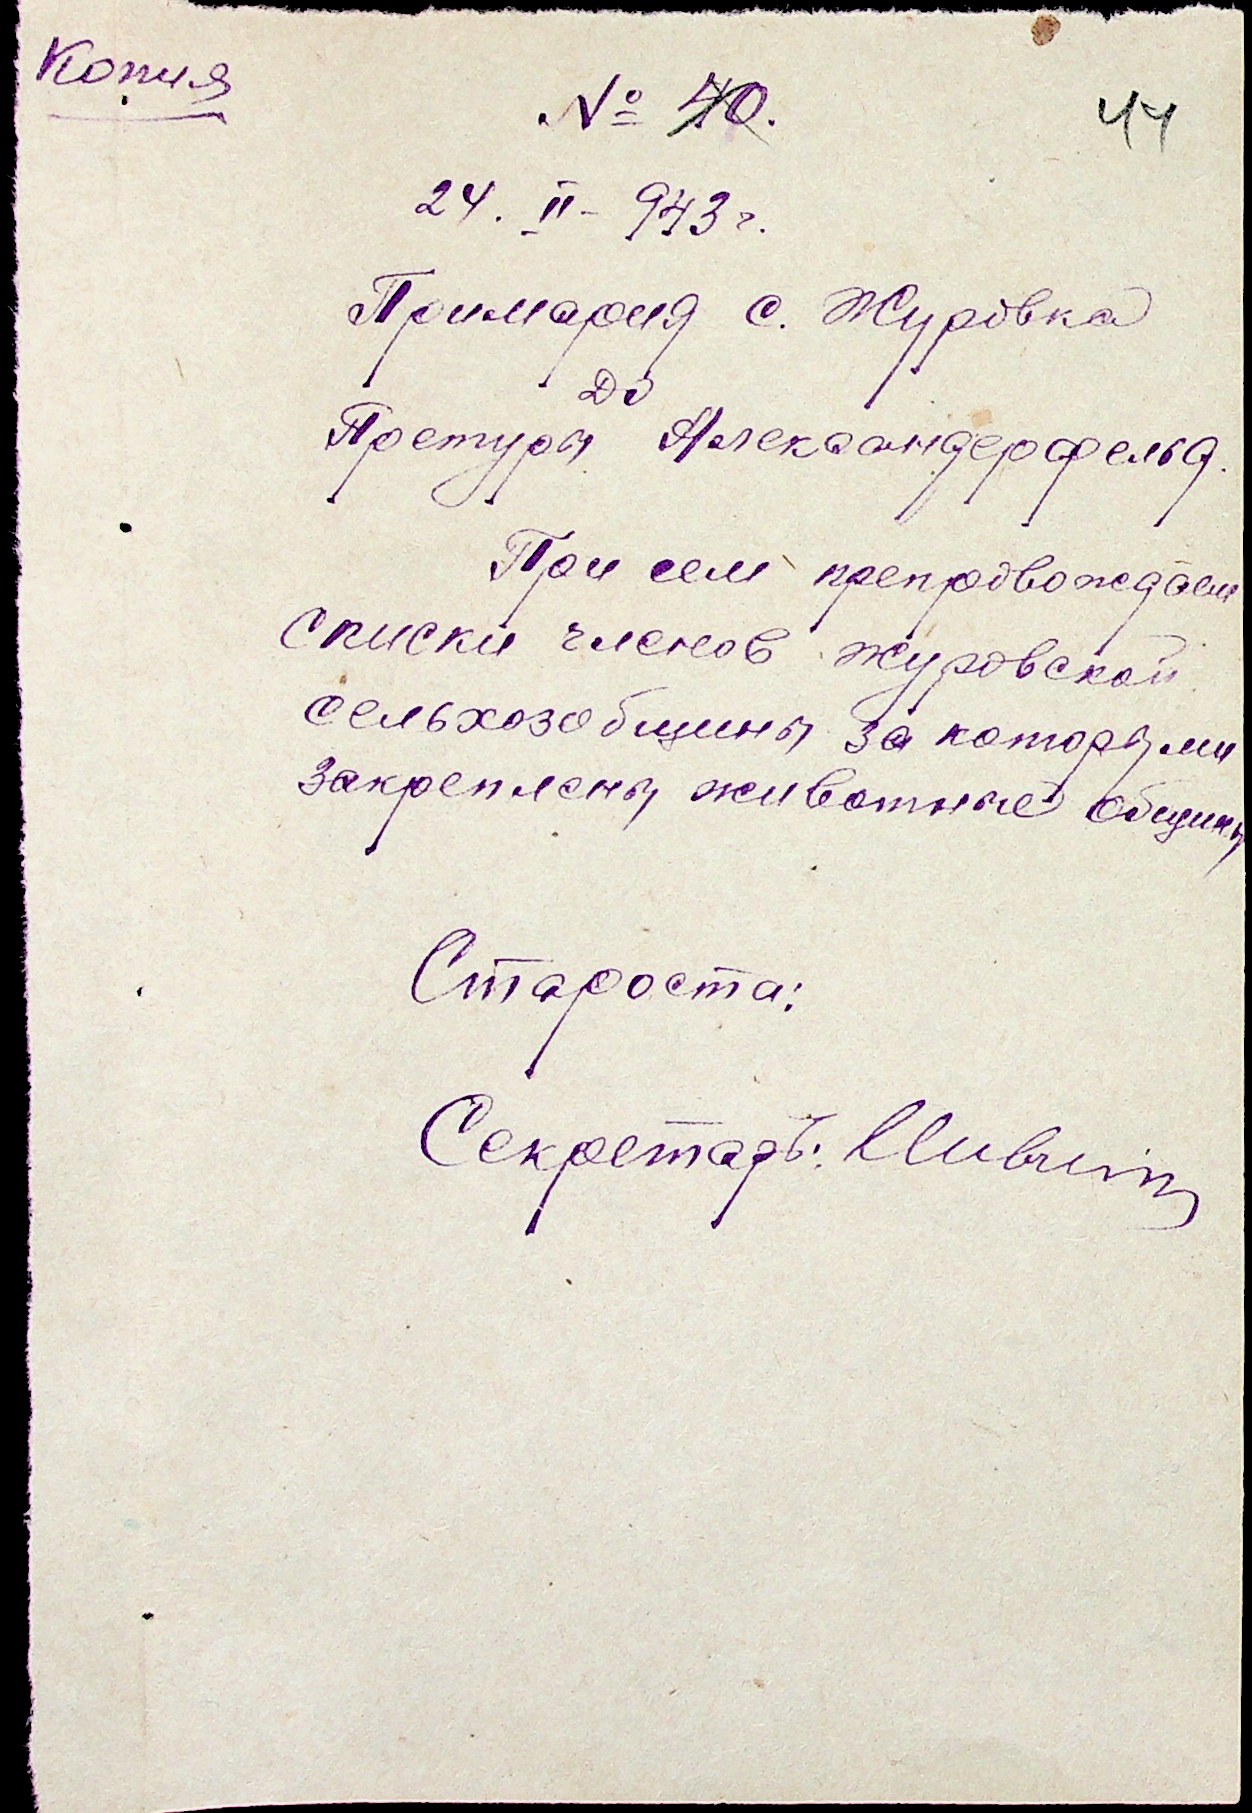 Копия
№ 40.
44
24. II - 943 г.
Примария с. Журовка
До
Претуры Александерфельд.
При сем препровождаем
списки членов журовской
сельхозобщины за которыми
закреплены животные общины
Староста:
Секретарь: